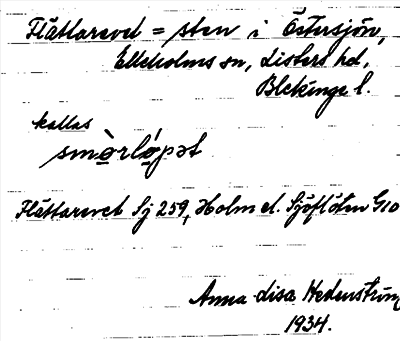 Flättarevet = sten i Östersjön,
Elleholms sn, Listers hd,
Blekinge l.
kallas
smò̱rló̱pət
Flättarevet Sj 259, Holm d. Sjöflöten G10
Anna-Lisa Hedenström
1934.